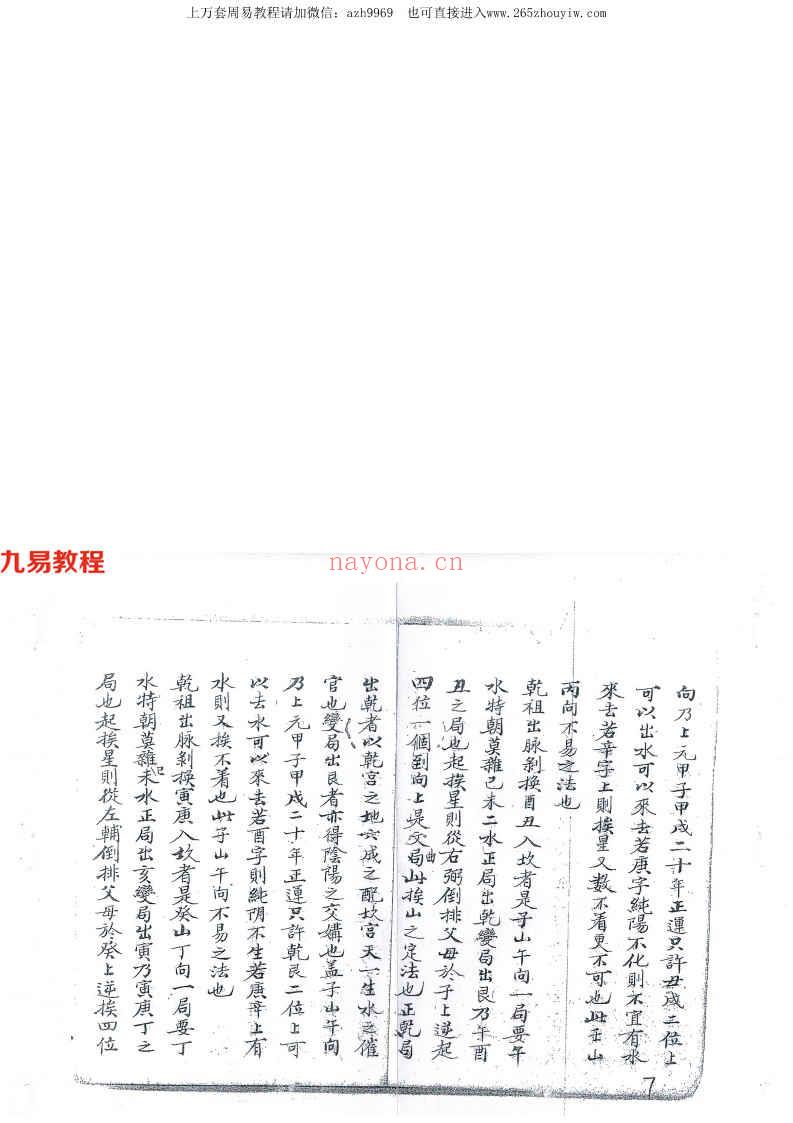 上万套周易教程请加微信：azh9969　也可直接进入www.265zhouyiw.com
九易教程
nayona.cn
向乃上元甲子甲戌二十年正運只許丑戌二位上
可以出水可以來去若庚字純陽不化則不宜有水
來去若辛字上則挨星又數不着更不可也此壬山
丙向不易之法也
乾祖出脉剝換酉丑入坎者是子山午向一局要午
水特朝莫雜己未二水正局出乾變局出艮乃午酉
丑之局也起挨星則從右弼倒排父母於子上逆起
四位一個到向上是交局山此挨山之定法也正乾局
曲
出乾者以乾宮之地六成之配坎宮天一生水之催
官也變局出艮者亦得陰陽之交媾也盖子山午向
乃上元甲子甲戌二十年正運只許乾艮二位上可
以去水可以來去若酉字則純阴不生若庚辛上有
水則又挨不着也此子山午向不易之法也
乾祖出脉剝換寅庚入坎者是癸山丁向一局要丁
水特朝莫雜未水正局出亥變局出寅乃寅庚丁之
局也起挨星則從左輔倒排父母於癸上逆挨四位
7